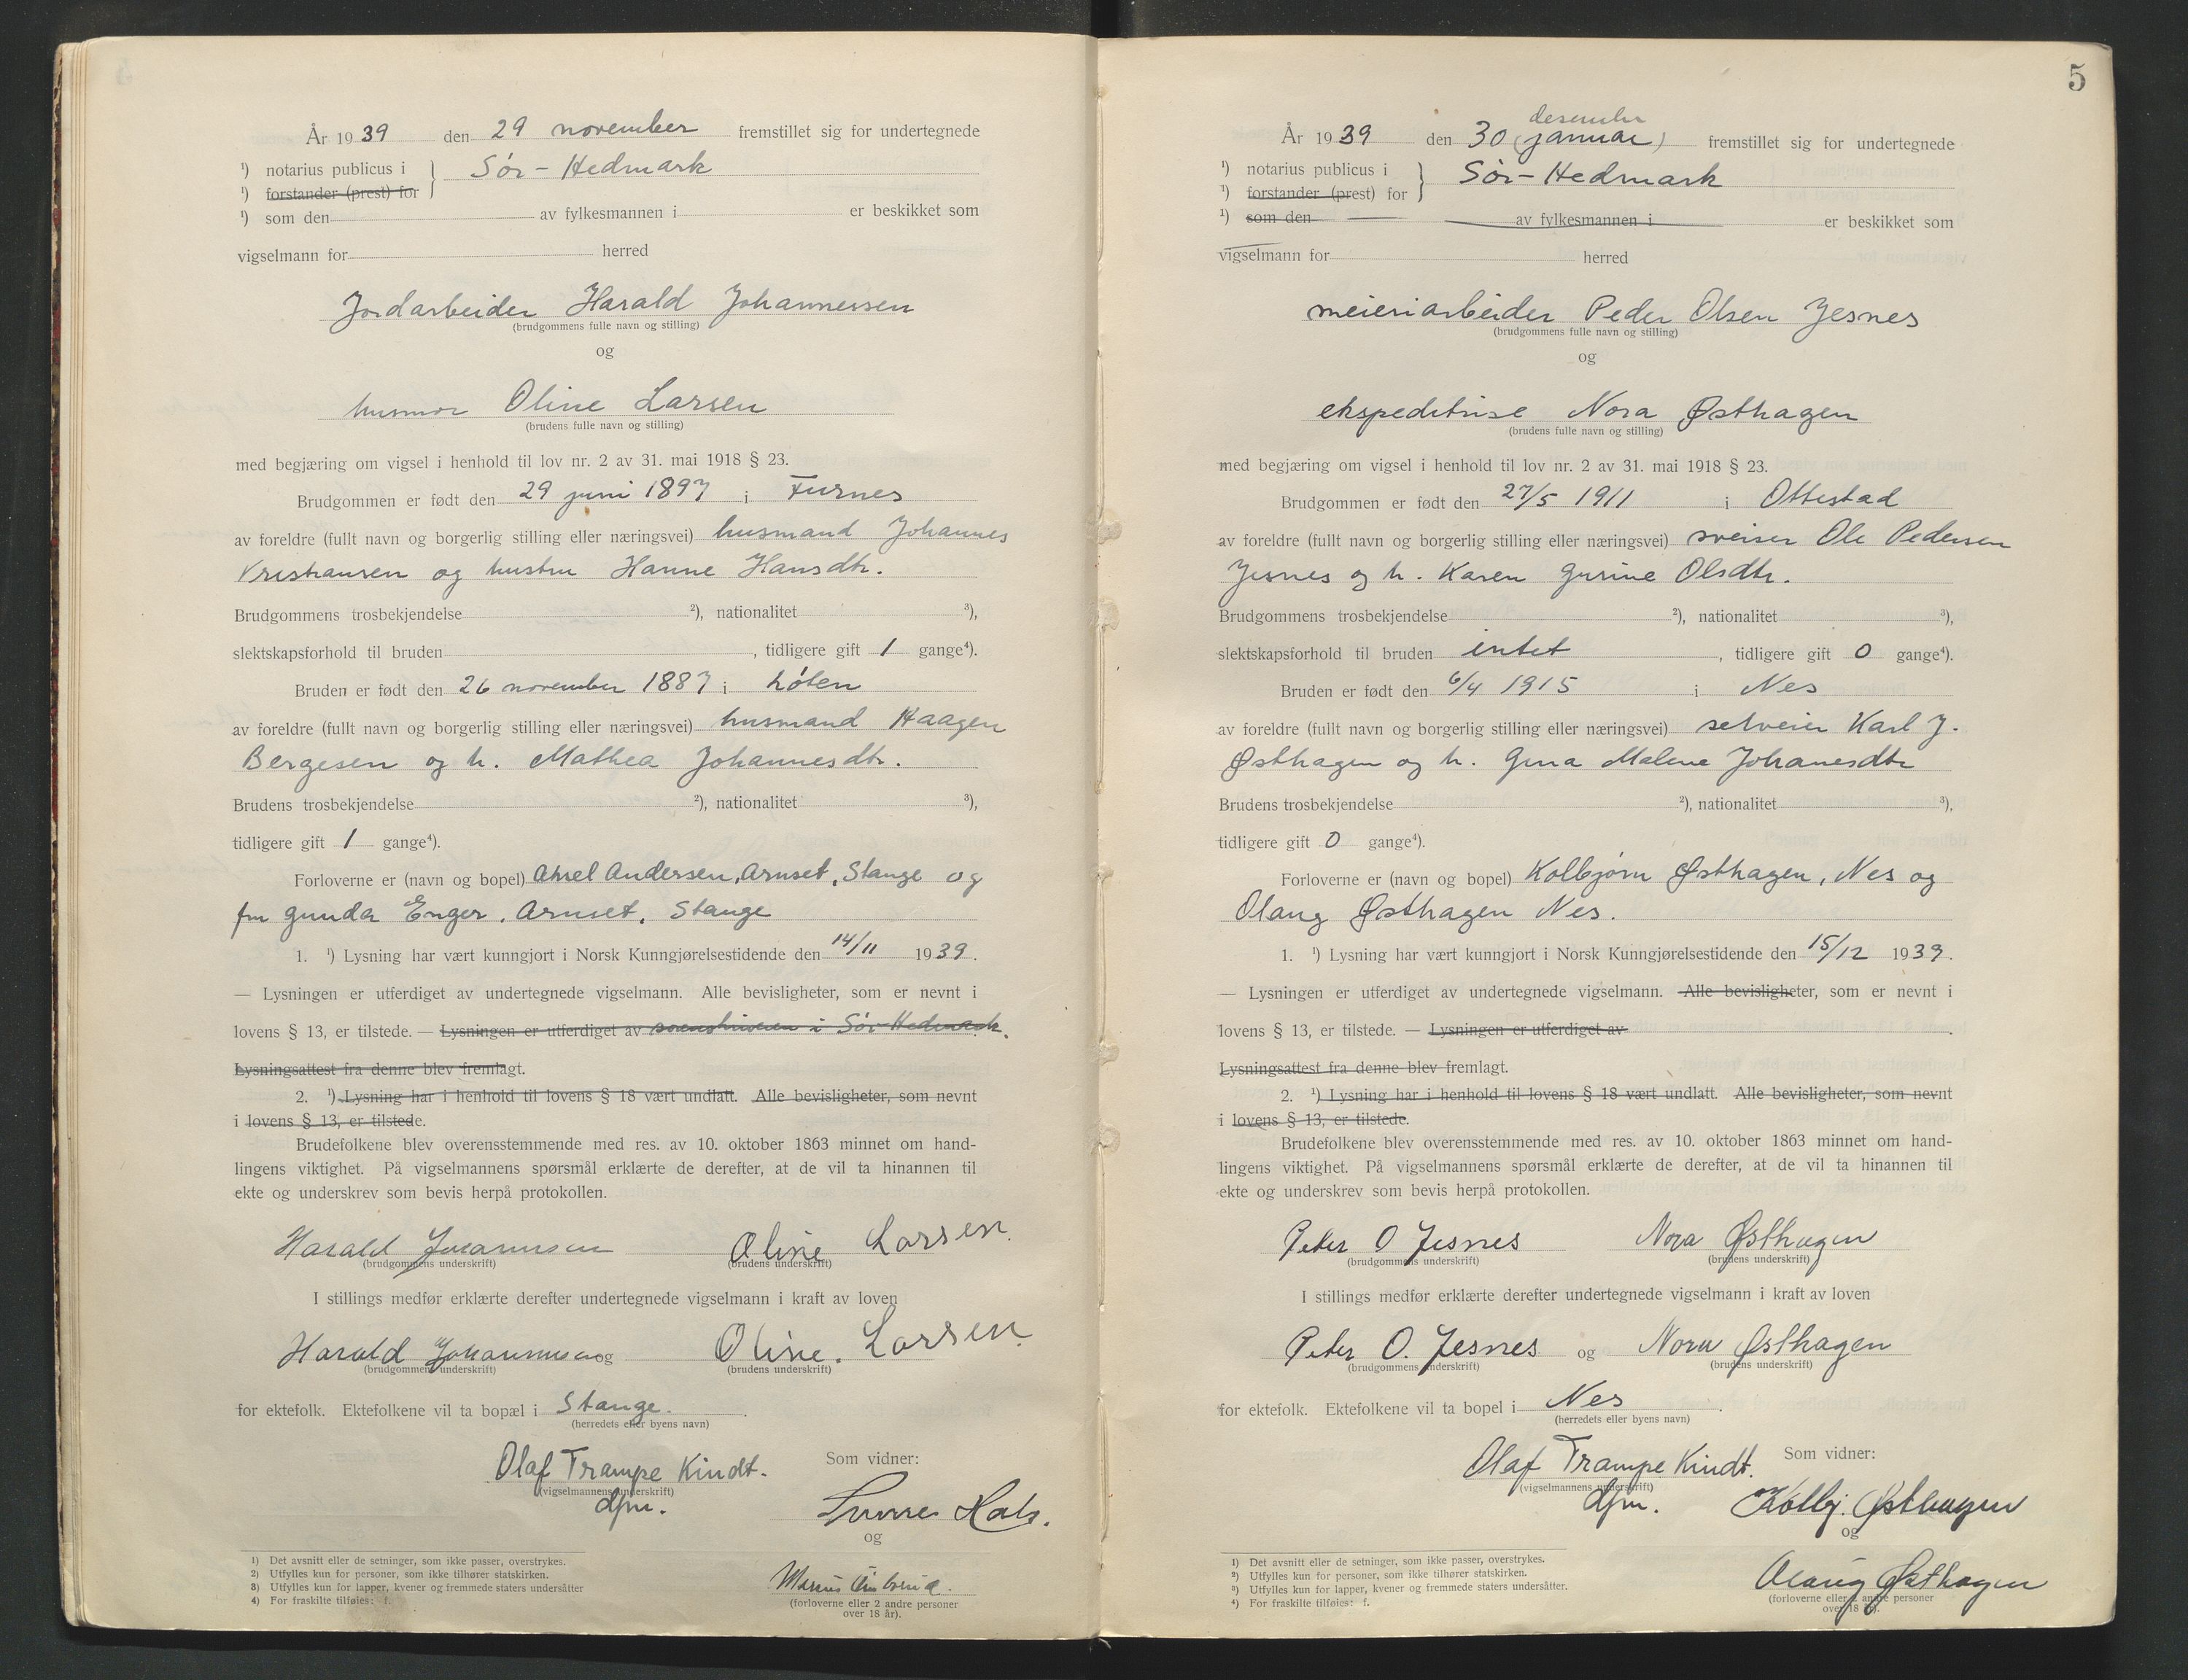 År 1939 den 29 november fremstillet sig for undertegnede
¹) notarius publicus i } Sör - Hedmark
¹) forstander (prest) for
¹) som den av fylkesmannen i er beskikket som
vigselmann for herred
Jordarbeider Harald Johannessen
(brudgommens fulle navn og stilling)
og
husmor Oline Larsen
(brudens fulle navn og stilling)
med begjæring om vigsel i henhold til lov nr. 2 av 31. mai 1918 § 23.
Brudgommen er født den 29 juni 1897 i Furnes
av foreldre (fullt navn og borgerlig stilling eller næringsvei) husmand Johannes
Kristiansen og hustru Hanne Hansdtr.
Brudgommens trosbekjendelse ²), nationalitet ³),
slektskapsforhold til bruden , tidligere gift 1 gange⁴).
Bruden er født den 26 november 1887 i Löten
av foreldre (fullt navn og borgerlig stilling eller næringsvei) husmand Haagen
Bergesen og h. Mathea Johannesdtr.
Brudens trosbekjendelse ²), nationalitet ³),
tidligere gift 1 gange⁴).
Forloverne er (navn og bopel) Aksel Andersen, Arnset, Stange og
fru Gunda Enger, Arnset, Stange
1. ¹) Lysning har vært kunngjort i Norsk Kunngjørelsestidende den 14/11 1939.
— Lysningen er utferdiget av undertegnede vigselmann. Alle bevisligheter, som er nevnt i
lovens § 13, er tilstede. — Lysningen er utferdiget av sorenskriveren i Sör-Hedmark.
Lysningsattest fra denne blev fremlagt.
2. ¹) Lysning har i henhold til lovens § 18 vært undlatt. Alle bevisligheter, som nevnt
i lovens § 13, er tilstede.
Brudefolkene blev overensstemmende med res. av 10. oktober 1863 minnet om hand-
lingens viktighet. På vigselmannens spørsmål erklærte de derefter, at de vil ta hinannen til
ekte og underskrev som bevis herpå protokollen.
Harald Johannessen Oline Larsen.
(brudgommens underskrift) (brudens underskrift)
I stillings medfør erklærte derefter undertegnede vigselmann i kraft av loven
Harald Johannessen og Oline. Larsen
(brudgommens underskrift) (brudens underskrift)
for ektefolk. Ektefolkene vil ta bopæl i Stange.
(herredets eller byens navn)
Olaf Trampe Kindt. Som vidner:
(vigselmannens underskrift)
dfm.
og
Marius
(forloverne eller 2 andre personer
over 18 år).
1) Det avsnitt eller de setninger, som ikke passer, overstrykes.
2) Utfylles kun for personer, som ikke tilhører statskirken.
3) Utfylles kun for lapper, kvener og fremmede staters undersåtter
4) For fraskilte tilføies: f.
5
desember
År 1939 den 30 (januar) fremstillet sig for undertegnede
¹) notarius publicus i } Sör - Hedmark
¹) forstander (prest) for
¹) som den av fylkesmannen i er beskikket som
vigselmann for herred
meieriarbeider Peder Olsen Jesnes
(brudgommens fulle navn og stilling)
og
ekspeditrise Nora Østhagen
(brudens fulle navn og stilling)
med begjæring om vigsel i henhold til lov nr. 2 av 31. mai 1918 § 23.
Brudgommen er født den 27/5 1911 i Ottestad
av foreldre (fullt navn og borgerlig stilling eller næringsvei) sveiser Ole Pedersen
Jesnes og h. Karen Gurine Olsdtr.
Brudgommens trosbekjendelse ²), nationalitet ³),
slektskapsforhold til bruden intet , tidligere gift 0 gange⁴).
Bruden er født den 6/4 1915 i Nes
av foreldre (fullt navn og borgerlig stilling eller næringsvei) selveier Karl J.
Østhagen og h. Gina Malene Johanesdtr
Brudens trosbekjendelse ²), nationalitet ³),
tidligere gift 0 gange⁴).
Forloverne er (navn og bopel) Kolbjørn Østhagen, Nes og
Olaug Østhagen Nes.
1. ¹) Lysning har vært kunngjort i Norsk Kunngjørelsestidende den 15/12 1939.
— Lysningen er utferdiget av undertegnede vigselmann. Alle bevisligheter, som er nevnt i
lovens § 13, er tilstede. — Lysningen er utferdiget av .
Lysningsattest fra denne blev fremlagt.
2. ¹) Lysning har i henhold til lovens § 18 vært undlatt. Alle bevisligheter, som nevnt
i lovens § 13, er tilstede.
Brudefolkene blev overensstemmende med res. av 10. oktober 1863 minnet om hand-
lingens viktighet. På vigselmannens spørsmål erklærte de derefter, at de vil ta hinannen til
ekte og underskrev som bevis herpå protokollen.
Peter O Jesnes Nora Østhagen
(brudgommens underskrift) (brudens underskrift)
I stillings medfør erklærte derefter undertegnede vigselmann i kraft av loven
Peter O. Jesnes og Nora Østhagen
(brudgommens underskrift) (brudens underskrift)
for ektefolk. Ektefolkene vil ta bopel i Nes .
(herredets eller byens navn)
Olaf Trampe Kindt. Som vidner:
(vigselmannens underskrift)
dfm. Kolbj. Østhagen
og
Olaug Østhagen
(forloverne eller 2 andre personer
over 18 år).
1) Det avsnitt eller de setninger, som ikke passer, overstrykes.
2) Utfylles kun for personer, som ikke tilhører statskirken.
3) Utfylles kun for lapper, kvener og fremmede staters undersåtter.
4) For fraskilte tilføies: f.